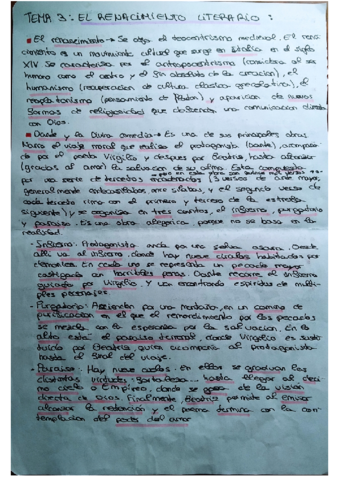 TEMA 3: EL RENACIMIENTO LITERARIO:
El renacimiento → Se deja el teocentrismo medieval. El rena-
cimiento es un movimiento cultural que surge en Italia en el siglo
XIV. Se caracteriza por el antropocentrismo (considera al ser
humano como el centro y el fin absoluto de la creación), el
humanismo (recuperación de cultura clásica grecolatina), el
neoplatonismo (pensamiento de Platón) y aparición de nuevas
formas de religiosidad que defienden una comunicación directa
con Dios.
Dante y la Divina comedia → Es una de sus principales obras
Narra el viaje moral que realiza el protagonista (Dante), acompaña-
do por el poeta Virgilio y después por Beatriz, hasta alcanzar
(gracias al amor) la salvación de su alma. Está compuesta
por una serie de tercetos encadenados (3 versos de arte mayor,
generalmente endecasílabos, once sílabas, y el segundo verso de
cada terceto rima con el primero y tercero de la estrofa
siguiente), y se organiza en tres cantos, el infierno, purgatorio
y paraíso. Es una obra alegórica porque no se basa en la
realidad.
- Infierno: Protagonista anda por una selva oscura. Desde
allí va al infierno, donde hay nueve círculos habitados por
elementos. En cada uno se representa un pecado mayor
castigado con horribles penas. Dante recorre el infierno
guiado por Virgilio. Y va encontrando espíritus de múlti-
ples personajes.
- Purgatorio: Ascienden por una montaña, en un camino de
purificación en el que el remordimiento por los pecados
se mezcla con la esperanza por la salvación. En lo
alto está el paraíso terrenal, donde Virgilio es susti-
tuido por Beatriz quien acompaña al protagonista
hasta el final del viaje.
- Paraíso: Hay nueve cielos. En ellos se gradúan las
distintas virtudes: fortaleza... hasta llegar al déci-
mo cielo o Empíreo, donde se goza de la visión
directa de Dios. Finalmente, Beatriz permite al
alcanzar la redención y el poema termina con la con-
templación del poder del amor